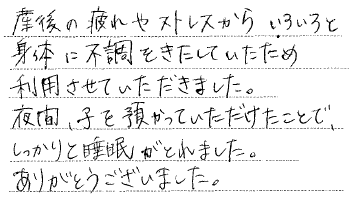 産後の疲れやストレスからいろいろと
身体に不調をきたしていたため
利用させていただきました。
夜間、子を預かっていただけたことで、
しっかりと睡眠がとれました。
ありがとうございました。